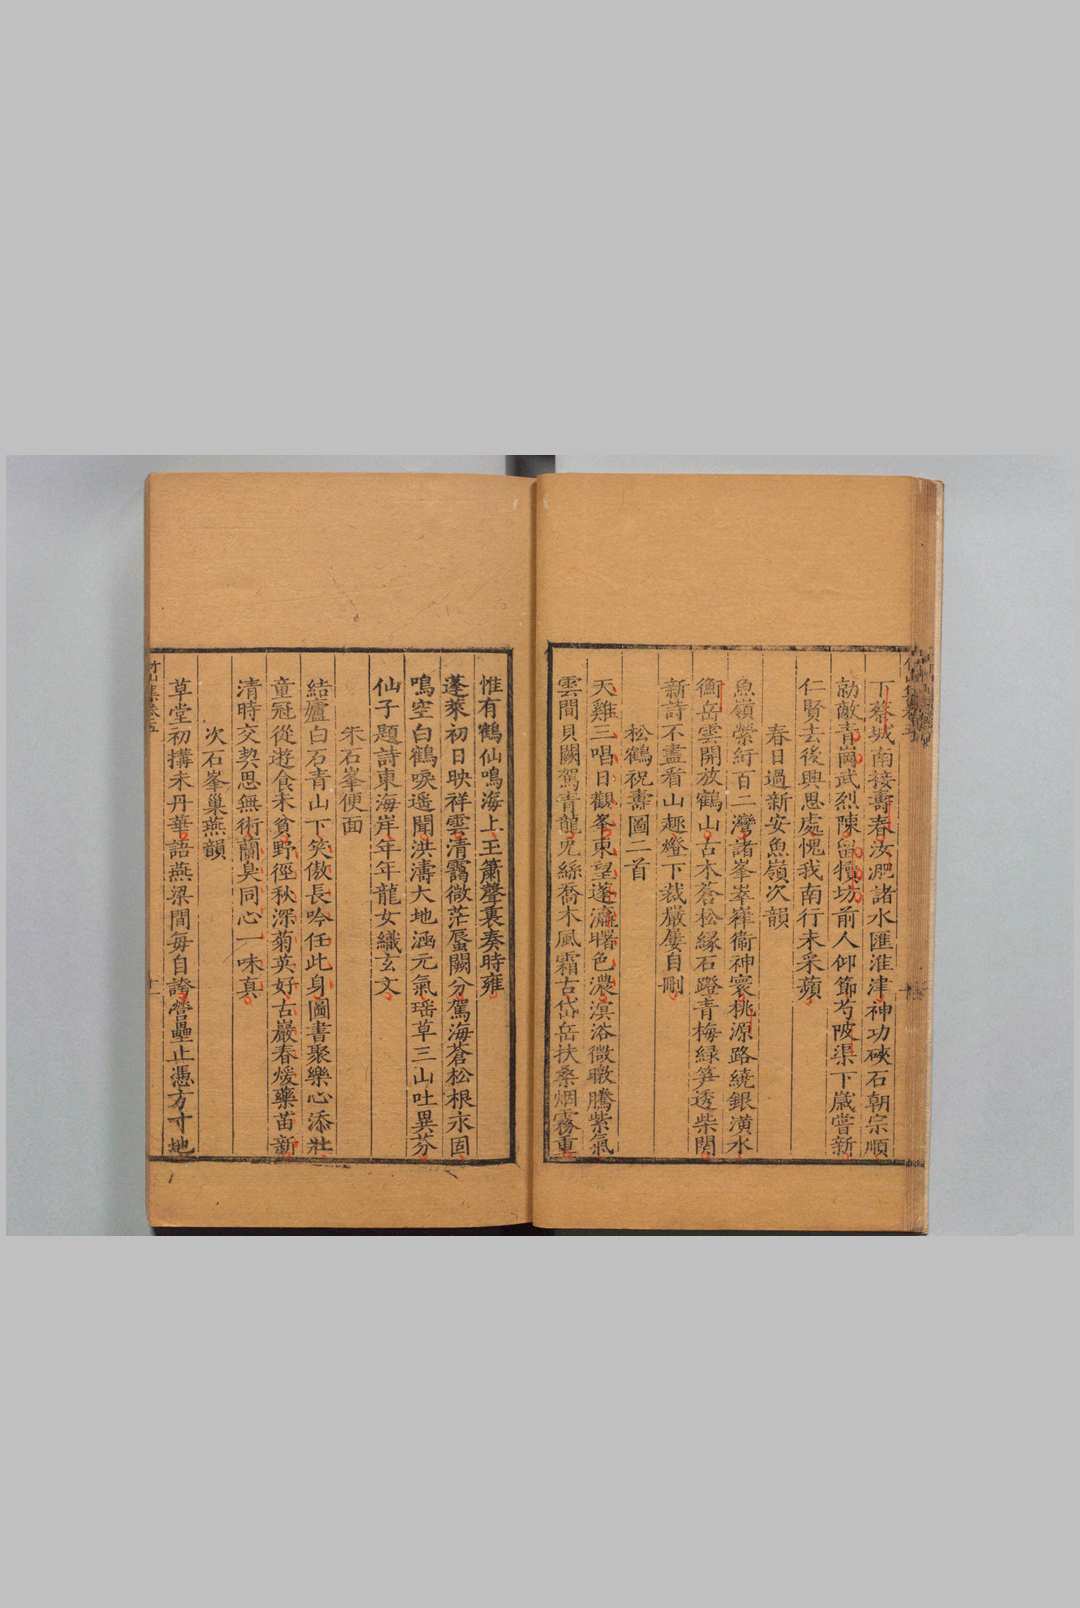 丁蔡城南接壽春汝淝諸水匯淮津神功硤石朝宗順
勍敵青岡武烈陳留犢坊前人仰節芍陂渠下歲嘗新
仁賢去後興思處愧我南行未采蘋
春日過新安魚嶺次韻
魚嶺縈紆百二灣諸峯崒嵂衛神寰桃源路繞銀潢水
衡岳雲開放鶴山古木蒼松緣石蹬青梅綠笋透柴関
新詩不盡看山趣燈下裁嚴屢自刪
松鶴祝壽圖二首
天雞三唱日觀峯東望蓬瀛曙色濃溟浴微暾騰紫氣
雲間貝闕駕青龍兎絲喬木風霜古岱岳扶桑烟霧重
惟有鶴仙鳴海上王簫聲裏奏時雍
蓬萊初日映祥雲清靄微茫蜃闕分駕海蒼松根永固
鳴空白鶴唳遥聞洪濤大地涵元氣瑶草三山吐異芬
仙子題詩東海岸年年龍女織玄文
朱石峯便面
結廬白石青山下笑傲長吟任此身圖書聚樂心添壯
童冠從遊食未貧野徑秋深菊英好古巖春煖藥苗新
清時交契思無術蘭臭同心一味真
次石峯巢燕韻
草堂初搆未丹華語燕梁間每自誇營壘止憑方寸地
竹山集卷五